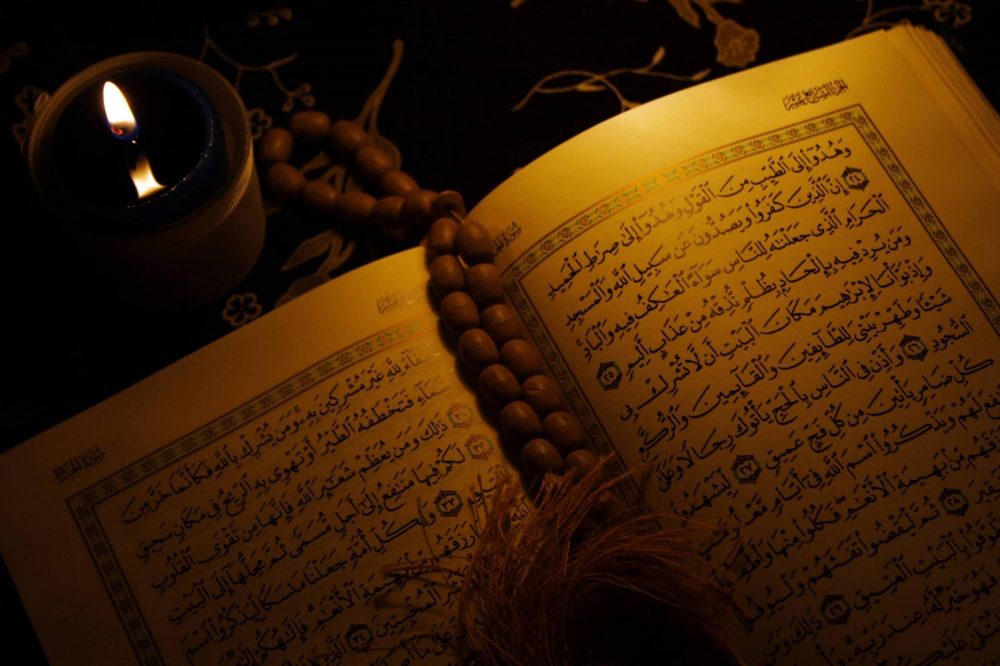 الجزء السابع عشر
سورة الحج
وَهُدُوٓا۟ إِلَى ٱلطَّيِّبِ مِنَ ٱلۡقَوۡلِ وَهُدُوٓا۟ إِلَىٰ صِرَٰطِ ٱلۡحَمِيدِ
٢٤ إِنَّ ٱلَّذِينَ كَفَرُوا۟ وَيَصُدُّونَ عَن سَبِيلِ ٱللَّهِ وَٱلۡمَسۡجِدِ
ٱلۡحَرَامِ ٱلَّذِي جَعَلۡنَٰهُ لِلنَّاسِ سَوَآءً ٱلۡعَٰكِفُ فِيهِ وَٱلۡبَادِ
وَمَن يُرِدۡ فِيهِ بِإِلۡحَادِۭ بِظُلۡمٖ نُّذِقۡهُ مِنۡ عَذَابٍ أَلِيمٖ ٢٥
وَإِذۡ بَوَّأۡنَا لِإِبۡرَٰهِيمَ مَكَانَ ٱلۡبَيۡتِ أَن لَّا تُشۡرِكۡ بِي
شَيۡـٔٗا وَطَهِّرۡ بَيۡتِيَ لِلطَّآئِفِينَ وَٱلۡقَآئِمِينَ وَٱلرُّكَّعِ
ٱلسُّجُودِ ٢٦ وَأَذِّن فِي ٱلنَّاسِ بِٱلۡحَجِّ يَأۡتُوكَ رِجَالٗا وَعَلَىٰ
كُلِّ ضَامِرٖ يَأۡتِينَ مِن كُلِّ فَجٍّ عَمِيقٖ ٢٧ لِّيَشۡهَدُوا۟
لَهُمۡ وَيَذۡكُرُوا۟ ٱسۡمَ ٱللَّهِ فِيٓ أَيَّامٖ
مِّنۢ بَهِيمَةِ ٱلۡأَنۡعَٰمِ فَكُلُوا۟ مِنۡهَا
٢٨ ثُمَّ لۡيَقۡضُوا۟ تَفَثَهُمۡ
بِٱلۡبَيۡتِ ٱلۡعَتِيقِ ٢٩ ذَٰلِكَ وَمَن
فَهُوَ خَيۡرٞ لَّهُۥ عِندَ
سورة الحج
لِلَّهِ غَيۡرَ مُشۡرِكِينَ بِهِۦ وَمَن يُشۡرِكۡ بِٱللَّهِ فَكَأَنَّمَا خَرَّ مِنَ
فَتَخۡطَفُهُ ٱلطَّيۡرُ أَوۡ تَهۡوِي بِهِ ٱلرِّيحُ فِي مَكَانٖ سَحِيقٖ
ذَٰلِكَ وَمَن يُعَظِّمۡ شَعَٰٓئِرَ ٱللَّهِ فَإِنَّهَا مِن تَقۡوَى ٱلۡقُلُوبِ
لَكُمۡ فِيهَا مَنَٰفِعُ إِلَىٰٓ أَجَلٖ مُّسَمّٗى ثُمَّ مَحِلُّهَآ إِلَى ٱلۡبَيۡتِ
٣٣ وَلِكُلِّ أُمَّةٖ جَعَلۡنَا مَنسَكٗا لِّيَذۡكُرُوا۟ ٱسۡمَ
ٱلۡأَنۡعَٰمِ فَإِلَٰهُكُمۡ
٣٤